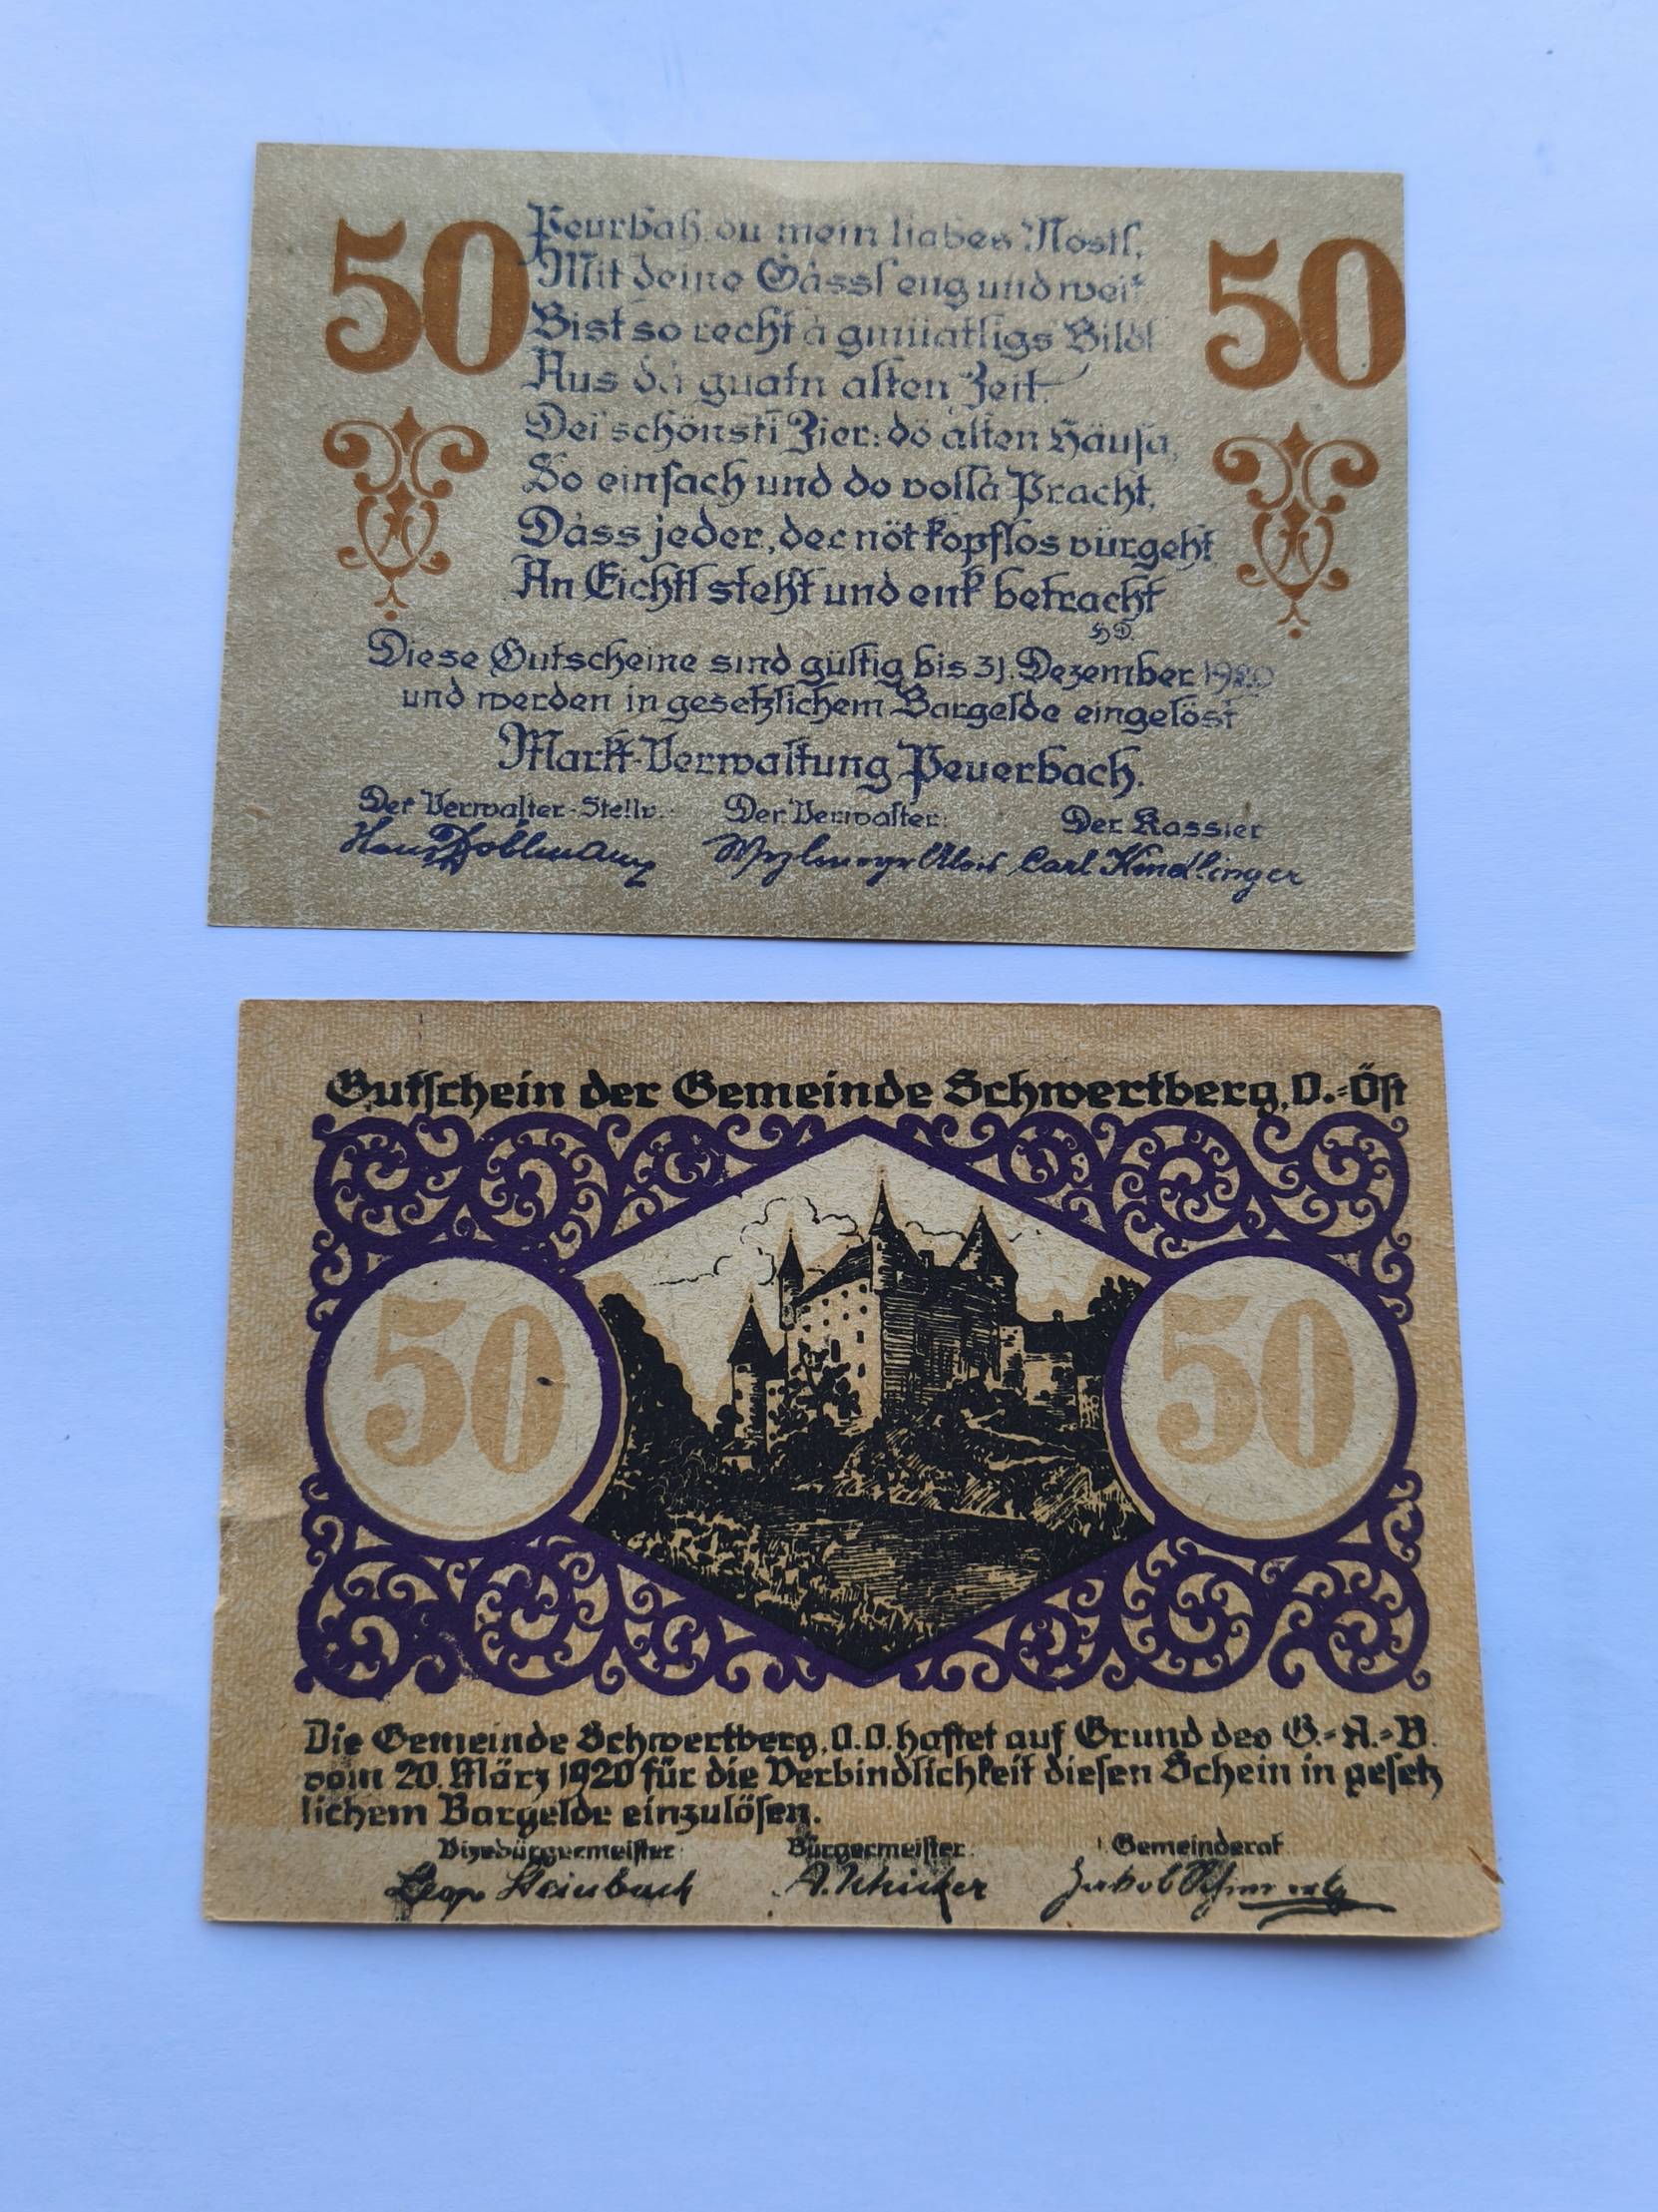 50
50
Peurbah, du mein liabes Nöstl,
Mit deine Gàssl eng und weit
Bist so recht à gmüatligs Bildl
Aus dà guatn alten Zeit.
Dei schönsti Zier: dö alten Häusa,
So einfach und do vollà Pracht,
Dàss jeder, der nöt kopflos vürgeht
An Eichtl steht und enk betracht
H D.
Diese Gutscheine sind gültig bis 31. Dezember 1920
und werden in gesetzlichem Bargelde eingelöst
Markt-Verwaltung Peuerbach.
Der Verwalter-Stellv.: Der Verwalter: Der Kassier
Carl Kindlinger
Gutschein der Gemeinde Schwertberg, O.-Öst
50
50
Die Gemeinde Schwertberg, O.Ö. haftet auf Grund des G.-A.-B.
vom 20. März 1920 für die Verbindlichkeit diesen Schein in gesetz
lichem Bargelde einzulösen.
Vizebürgermeister: Bürgermeister: Gemeinderat
Leop Steinbach
Jakob